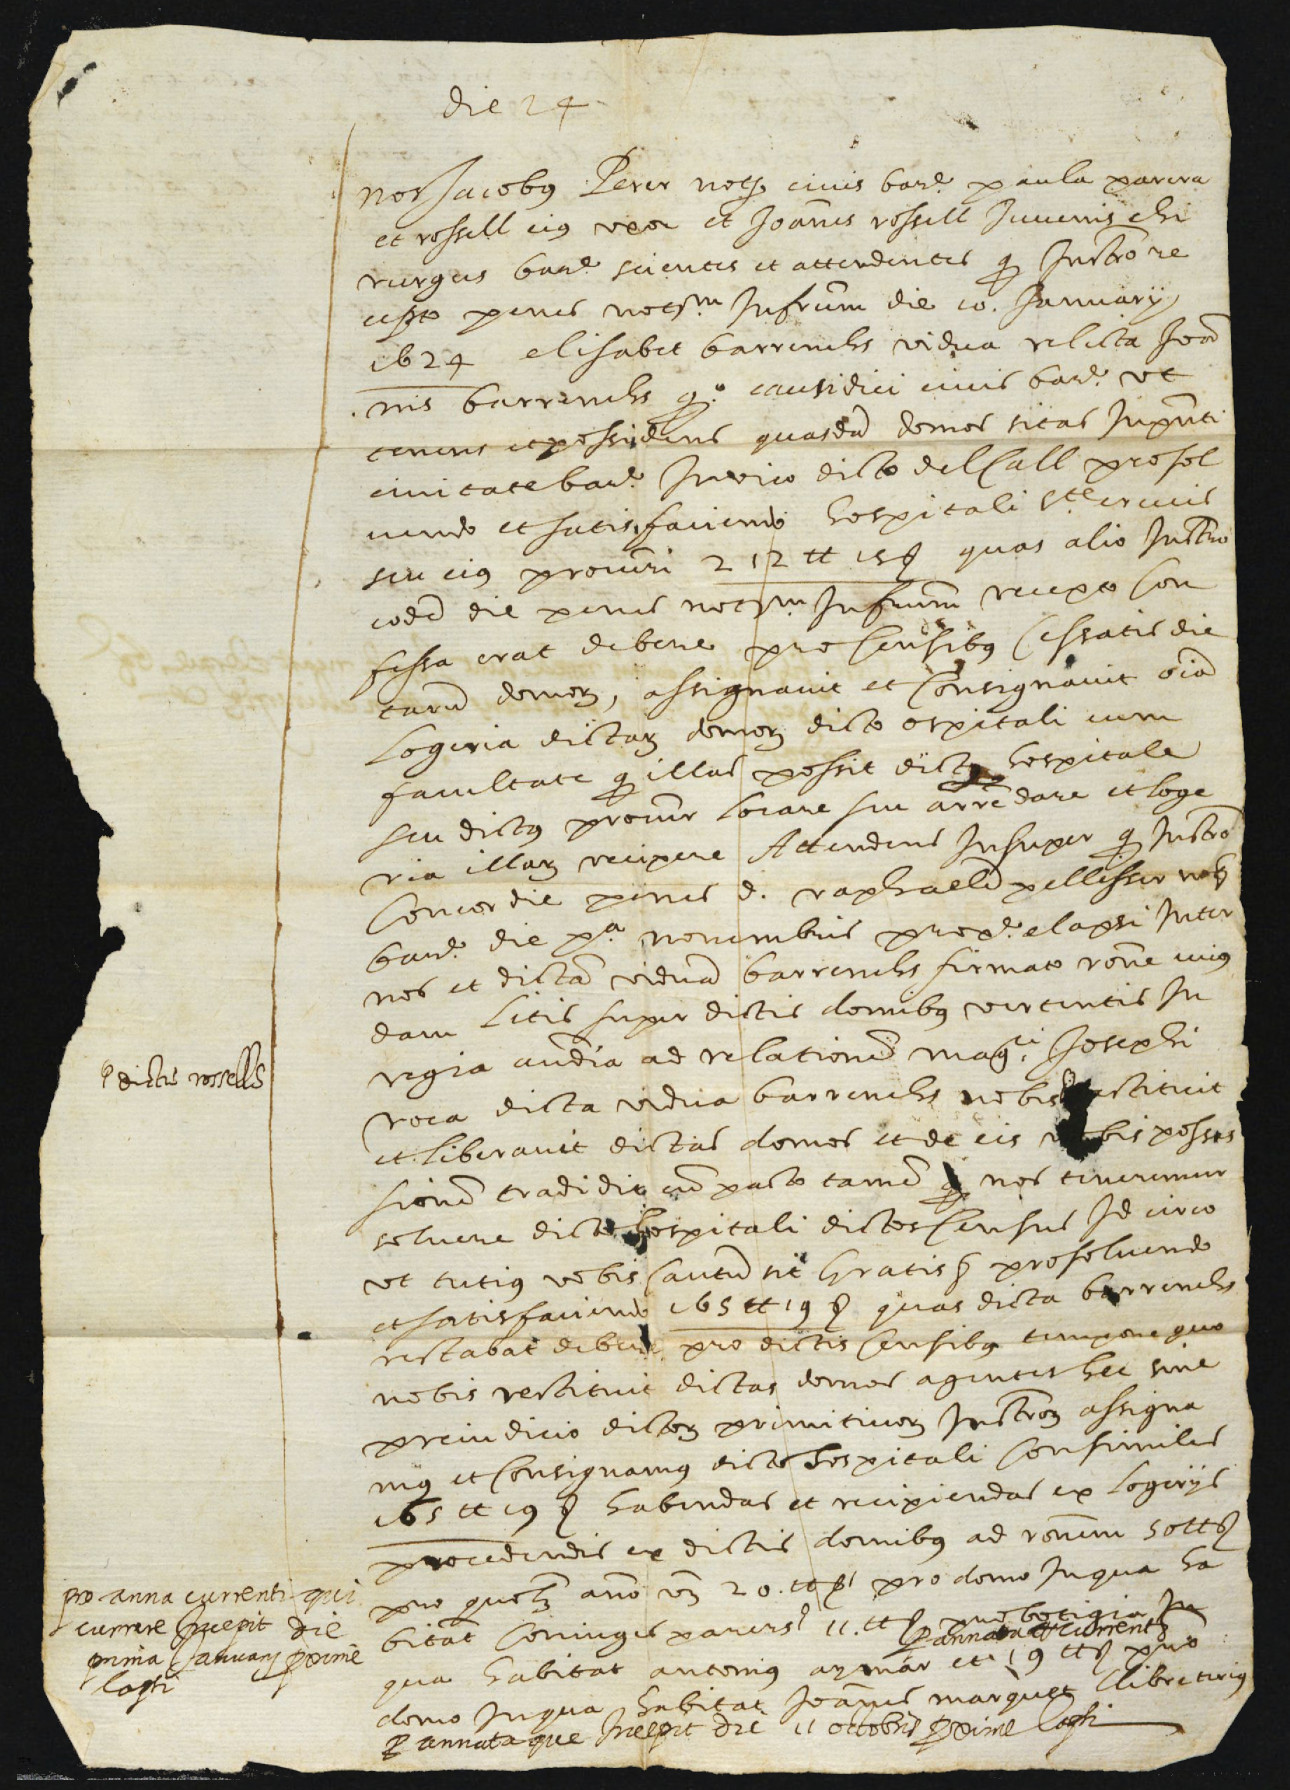 die 24
nos Jacobus Perer nots civis barc paula parera
et rossell eius uxor et Joannes rossell Juvenis chi
rurgus barc scientes et attendentes q Instro re
cepto penes notm Infrum die 10. Januarij
1624 elisabet barrenchs vidua relicta Joan
nis barrenchs q.º causidici civis barc. ut
tenens et possidens quasdã domos sitas Inpnti
civitate barc. Invico dicto del Call prosol
vendo et satisfaciendo hospitali Ste crucis
seu eius procuri 212 tt 15 ſ quas alio Instro
eodẽ die penes notm Infrum recepto Con
fessa erat debere pro Censibus Cessatis dic
tarũ domorũ, assignavit et Consignavit oiã
Logeria dictar domor dicto ospitali cum
facultate q illas possit dictũ hospitale
seu dictus procur Locare seu arrẽdare et loge
ria illarũ recipere Attendens Insuper q Instro
Concordie penes d. raphaelẽ pellisser nots
barc. die pa. novembris prox.e elapsi Inter
nos et dictã viduã barrenchs firmato rone cuius
dam Litis super dictis domibus vertentis In
regia audia ad relationẽ magci. Josephi
roca dicta vidua barrenchs nobis restituit
et liberavit dictas domos et de eis nobis posses
sionẽ tradidit cũ pacto tamẽ q nos teneremur
solvere dicto hospitali dictos Census Id circo
ut tutius vobis Cautũ sit Gratis ſ prosolvendo
et satisfaciendo 165 tt 19 ſ quas dicta barrenchs
restabat debere pro dictis Censibus tempore quo
nobis restituit dictas domos agentes hec sine
preiudicio dictor primitivor Instror assigna
mus et Consignamus dicto hospitali Consimiles
165 tt 19 ſ habendas et recipiendas ex Logerijs
procedendis ex dictis domibus ad ronem 50 tt ſ
pro quolt ano vz 20. tt ſ pro domo Inqua ha
bitãt Coniuges parers 11. tt ſ pro botigia In
p annata currenti
qua habitat antonius aymar et 19 tt ſ pro
domo Inqua habitat Joannes marquet llibreterius
p annata que Incepit die 11 octobris pxime lapsi
p dictis rossells
pro anna currenti qui
currere Incepit die
prima Januarij pxime
lapsi